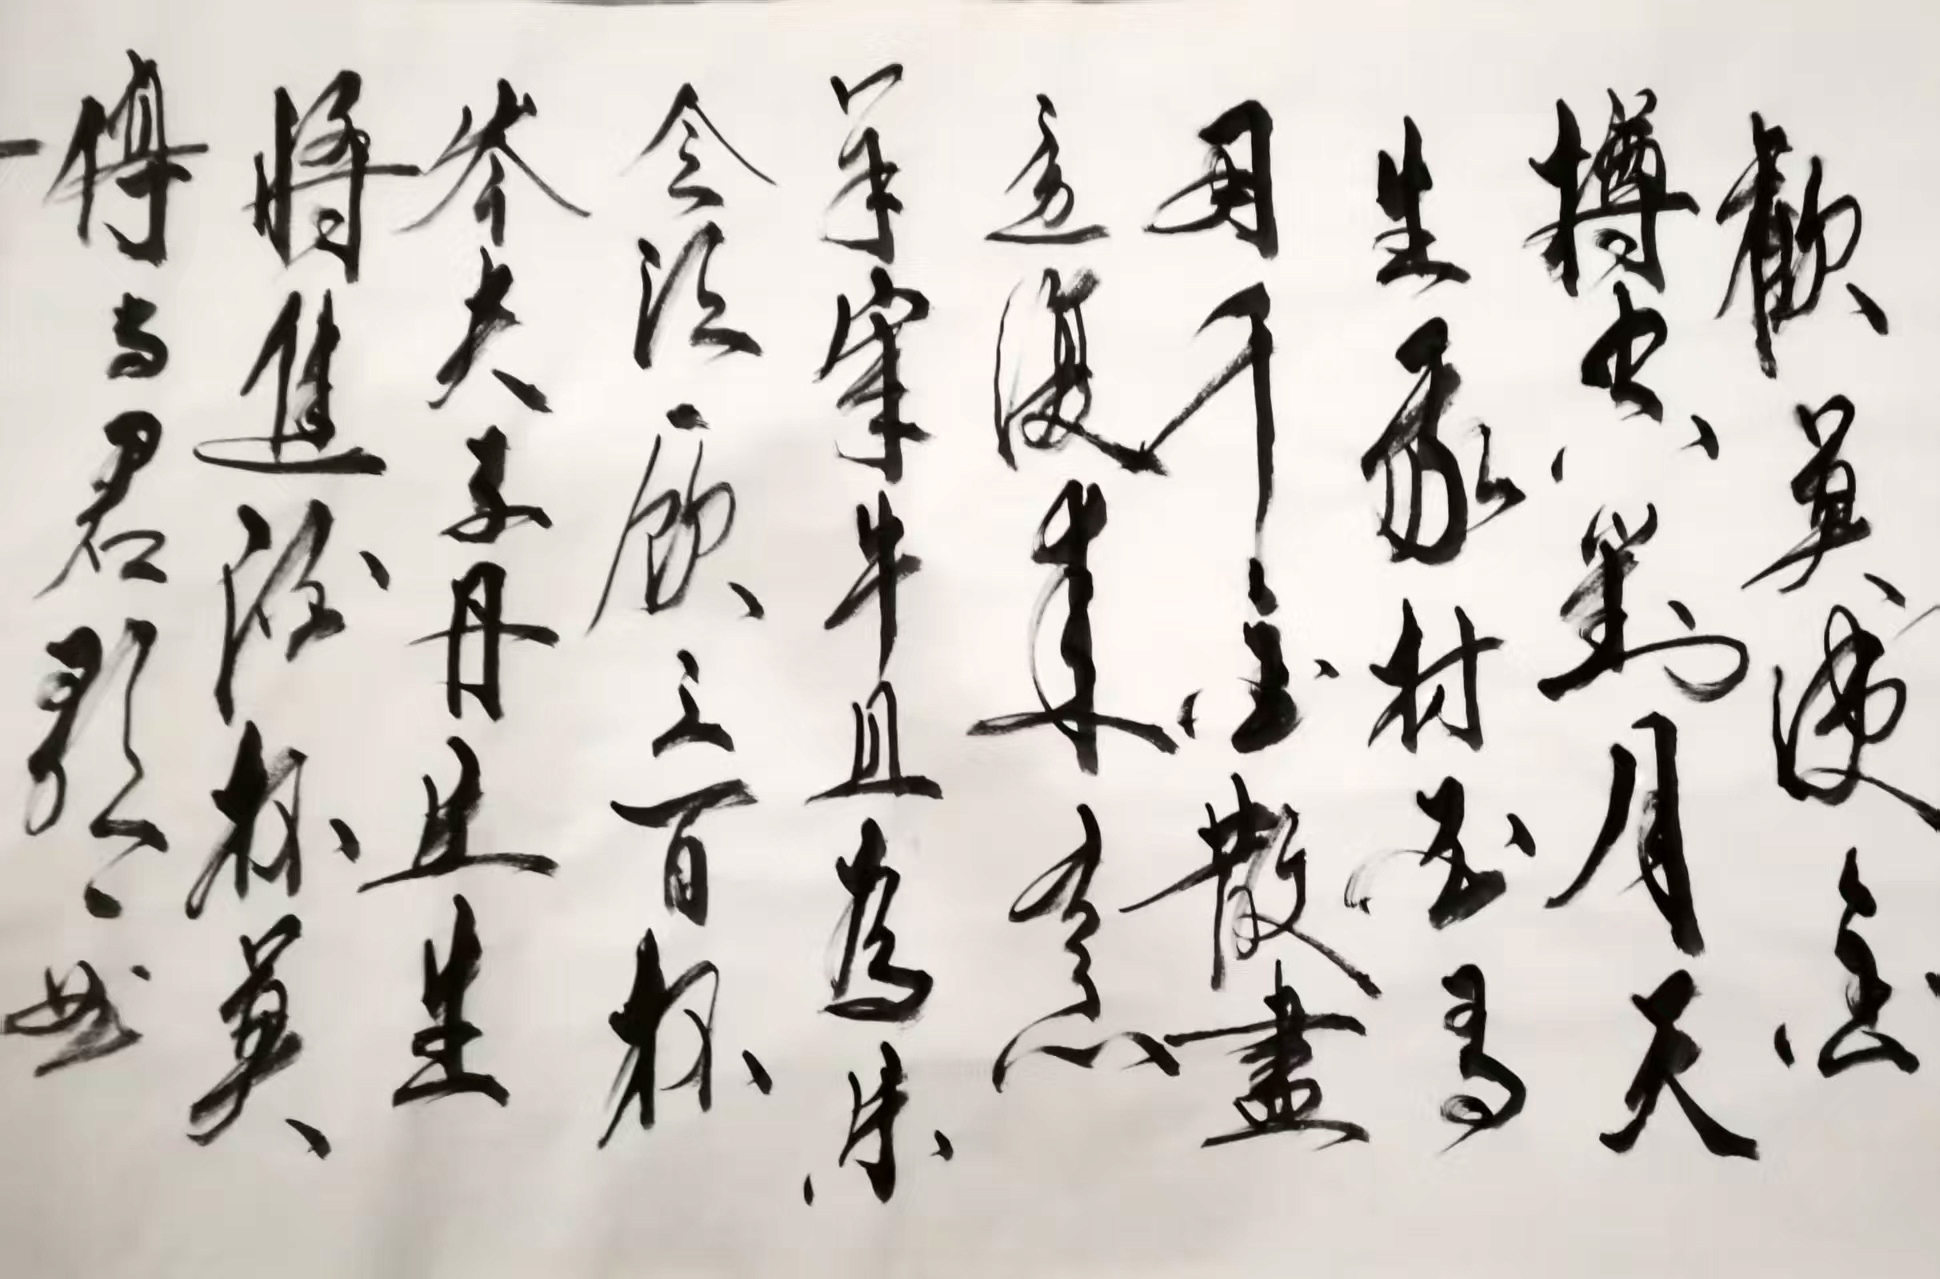 歡莫使金
樽空對月天
生我材必有
用千金散盡
還復來烹
羊宰牛且為樂
會須一飲三百杯
岑夫子丹丘生
將進酒杯莫
停與君歌一曲